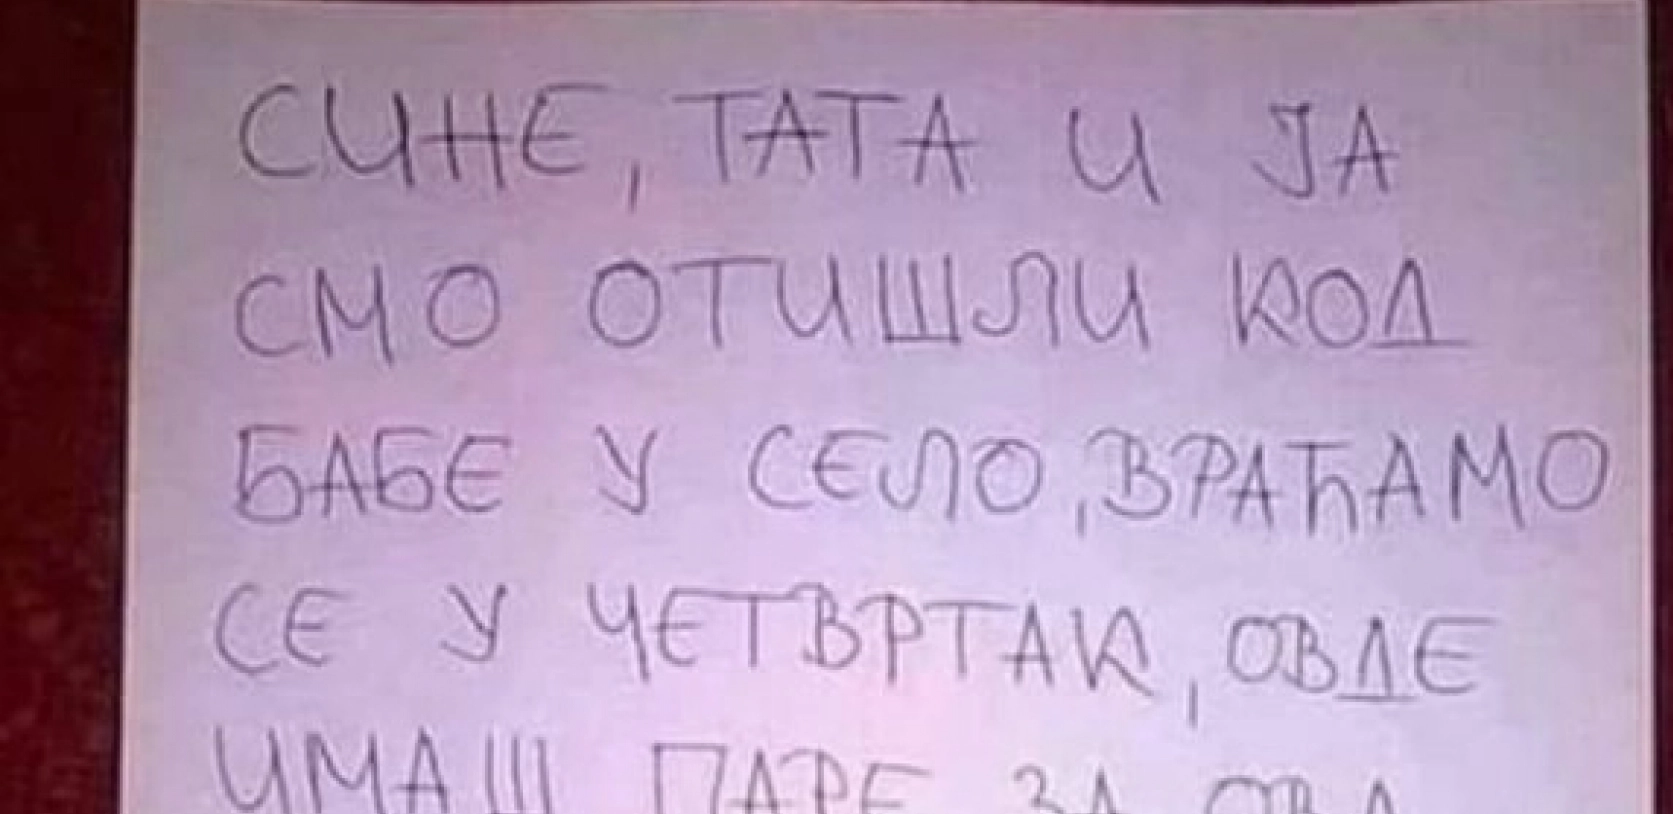 СИНЕ, ТАТА И ЈА
СМО ОТИШЛИ КОД
БАБЕ У СЕЛО, ВРАЋАМО
СЕ У ЧЕТВРТАК, ОВДЕ
ИМАШ ПАРЕ ЗА ОВА